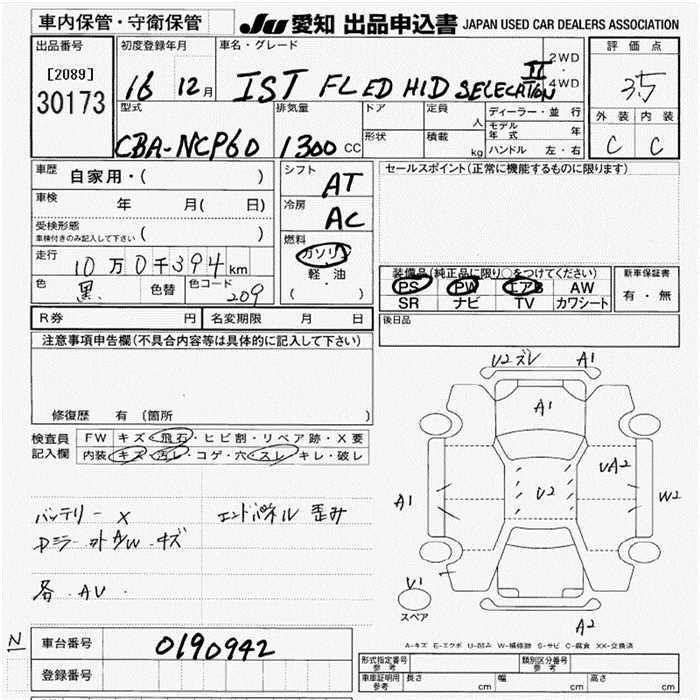 車内保管・守衛保管
JU 愛知 出品申込書 JAPAN USED CAR DEALERS ASSOCIATION
出品番号
[2089]
30173
初度登録年月
16 12月
車名・グレード
IST FL ED HID SELECATION II
2WD
・
4WD
評価点
3.5
外装 内装
C C
型式
CBA-NCP60
排気量
1300 CC
ドア
定員
人
形状
積載
kg
ディーラー・並行
モデル年式 年
ハンドル 左・右
車歴
自家用・( )
車検
年 月( 日)
受検形態
車検付きのみ記入して下さい ( )
走行
10万0千394km
色
黒
色替
色コード
209
シフト
AT
冷房
AC
燃料
ガソリン
・
軽油
・
( )
セールスポイント(正常に機能するものに限ります)
装備品(純正品に限り○をつけてください)
PS PW エアB AW
SR ナビ TV カワシート
新車保証書
有・無
後日品
R券 円
名変期限 月 日
注意事項申告欄(不具合内容等は具体的に記入して下さい)
修復歴 有 (箇所
検査員
記入欄
FW キズ・飛石・ヒビ割・リペア跡・X要
内装 キズ・汚レ・コゲ・穴・スレ・キレ・破レ
バッテリー X
エンドパネル 歪み
Dミラー カト A/W キズ
各 AU
U2ズレ A1
A1
A1
U2
UA2
W2
U1
スペア
A2
A-キズ E-エクボ U-凹み W-補修跡 S-サビ C-腐食 XX-交換済
N
車台番号
0190942
登録番号
形式指定番号
参考
類別区分番号
参考
車庫証明用
参考
長さ cm
幅 cm
高さ cm